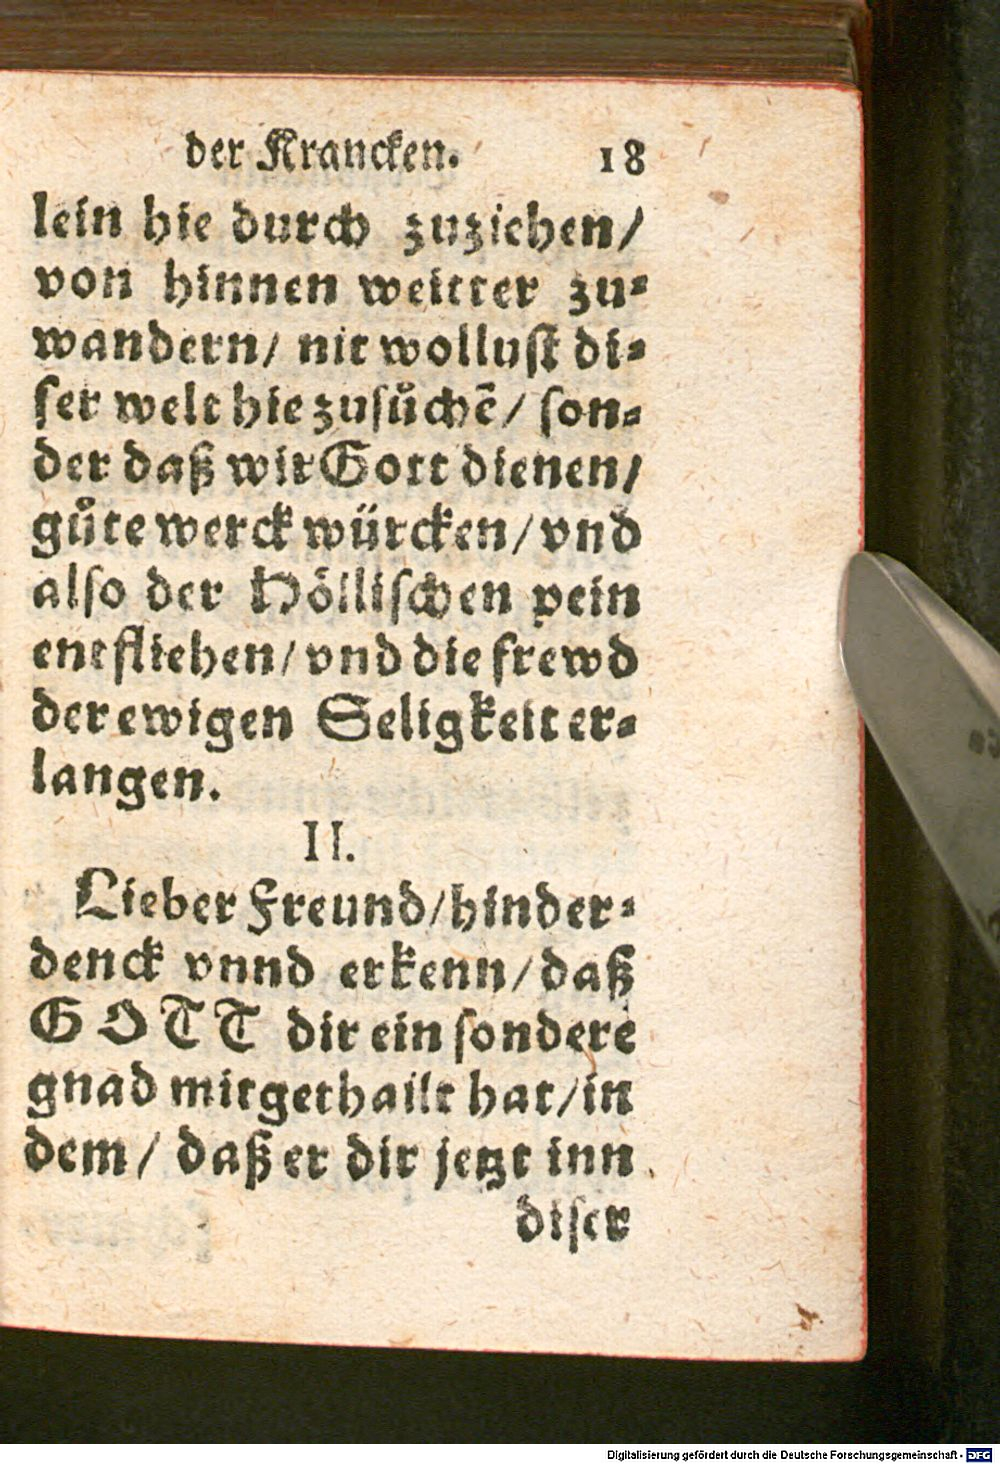 der Krancken. 18
lein hie durch zuziehen/
von hinnen weitter zu⸗
wandern/ nit wollust di⸗
ser welt hie zusůchē/ son⸗
der daß wir Gott dienen/
gůte werck würcken/ vnd
also der Höllischen pein
entfliehen/ vnd die frewd
der ewigen Seligkeit er⸗
langen.
II.
Lieber Freund/ hinder⸗
denck vnnd erkenn/ daß
GOTT dir ein sondere
gnad mitgethailt hat/ in
dem/ daß er dir jetzt inn
diser
Digitalisierung gefördert durch die Deutsche Forschungsgemeinschaft - DFG